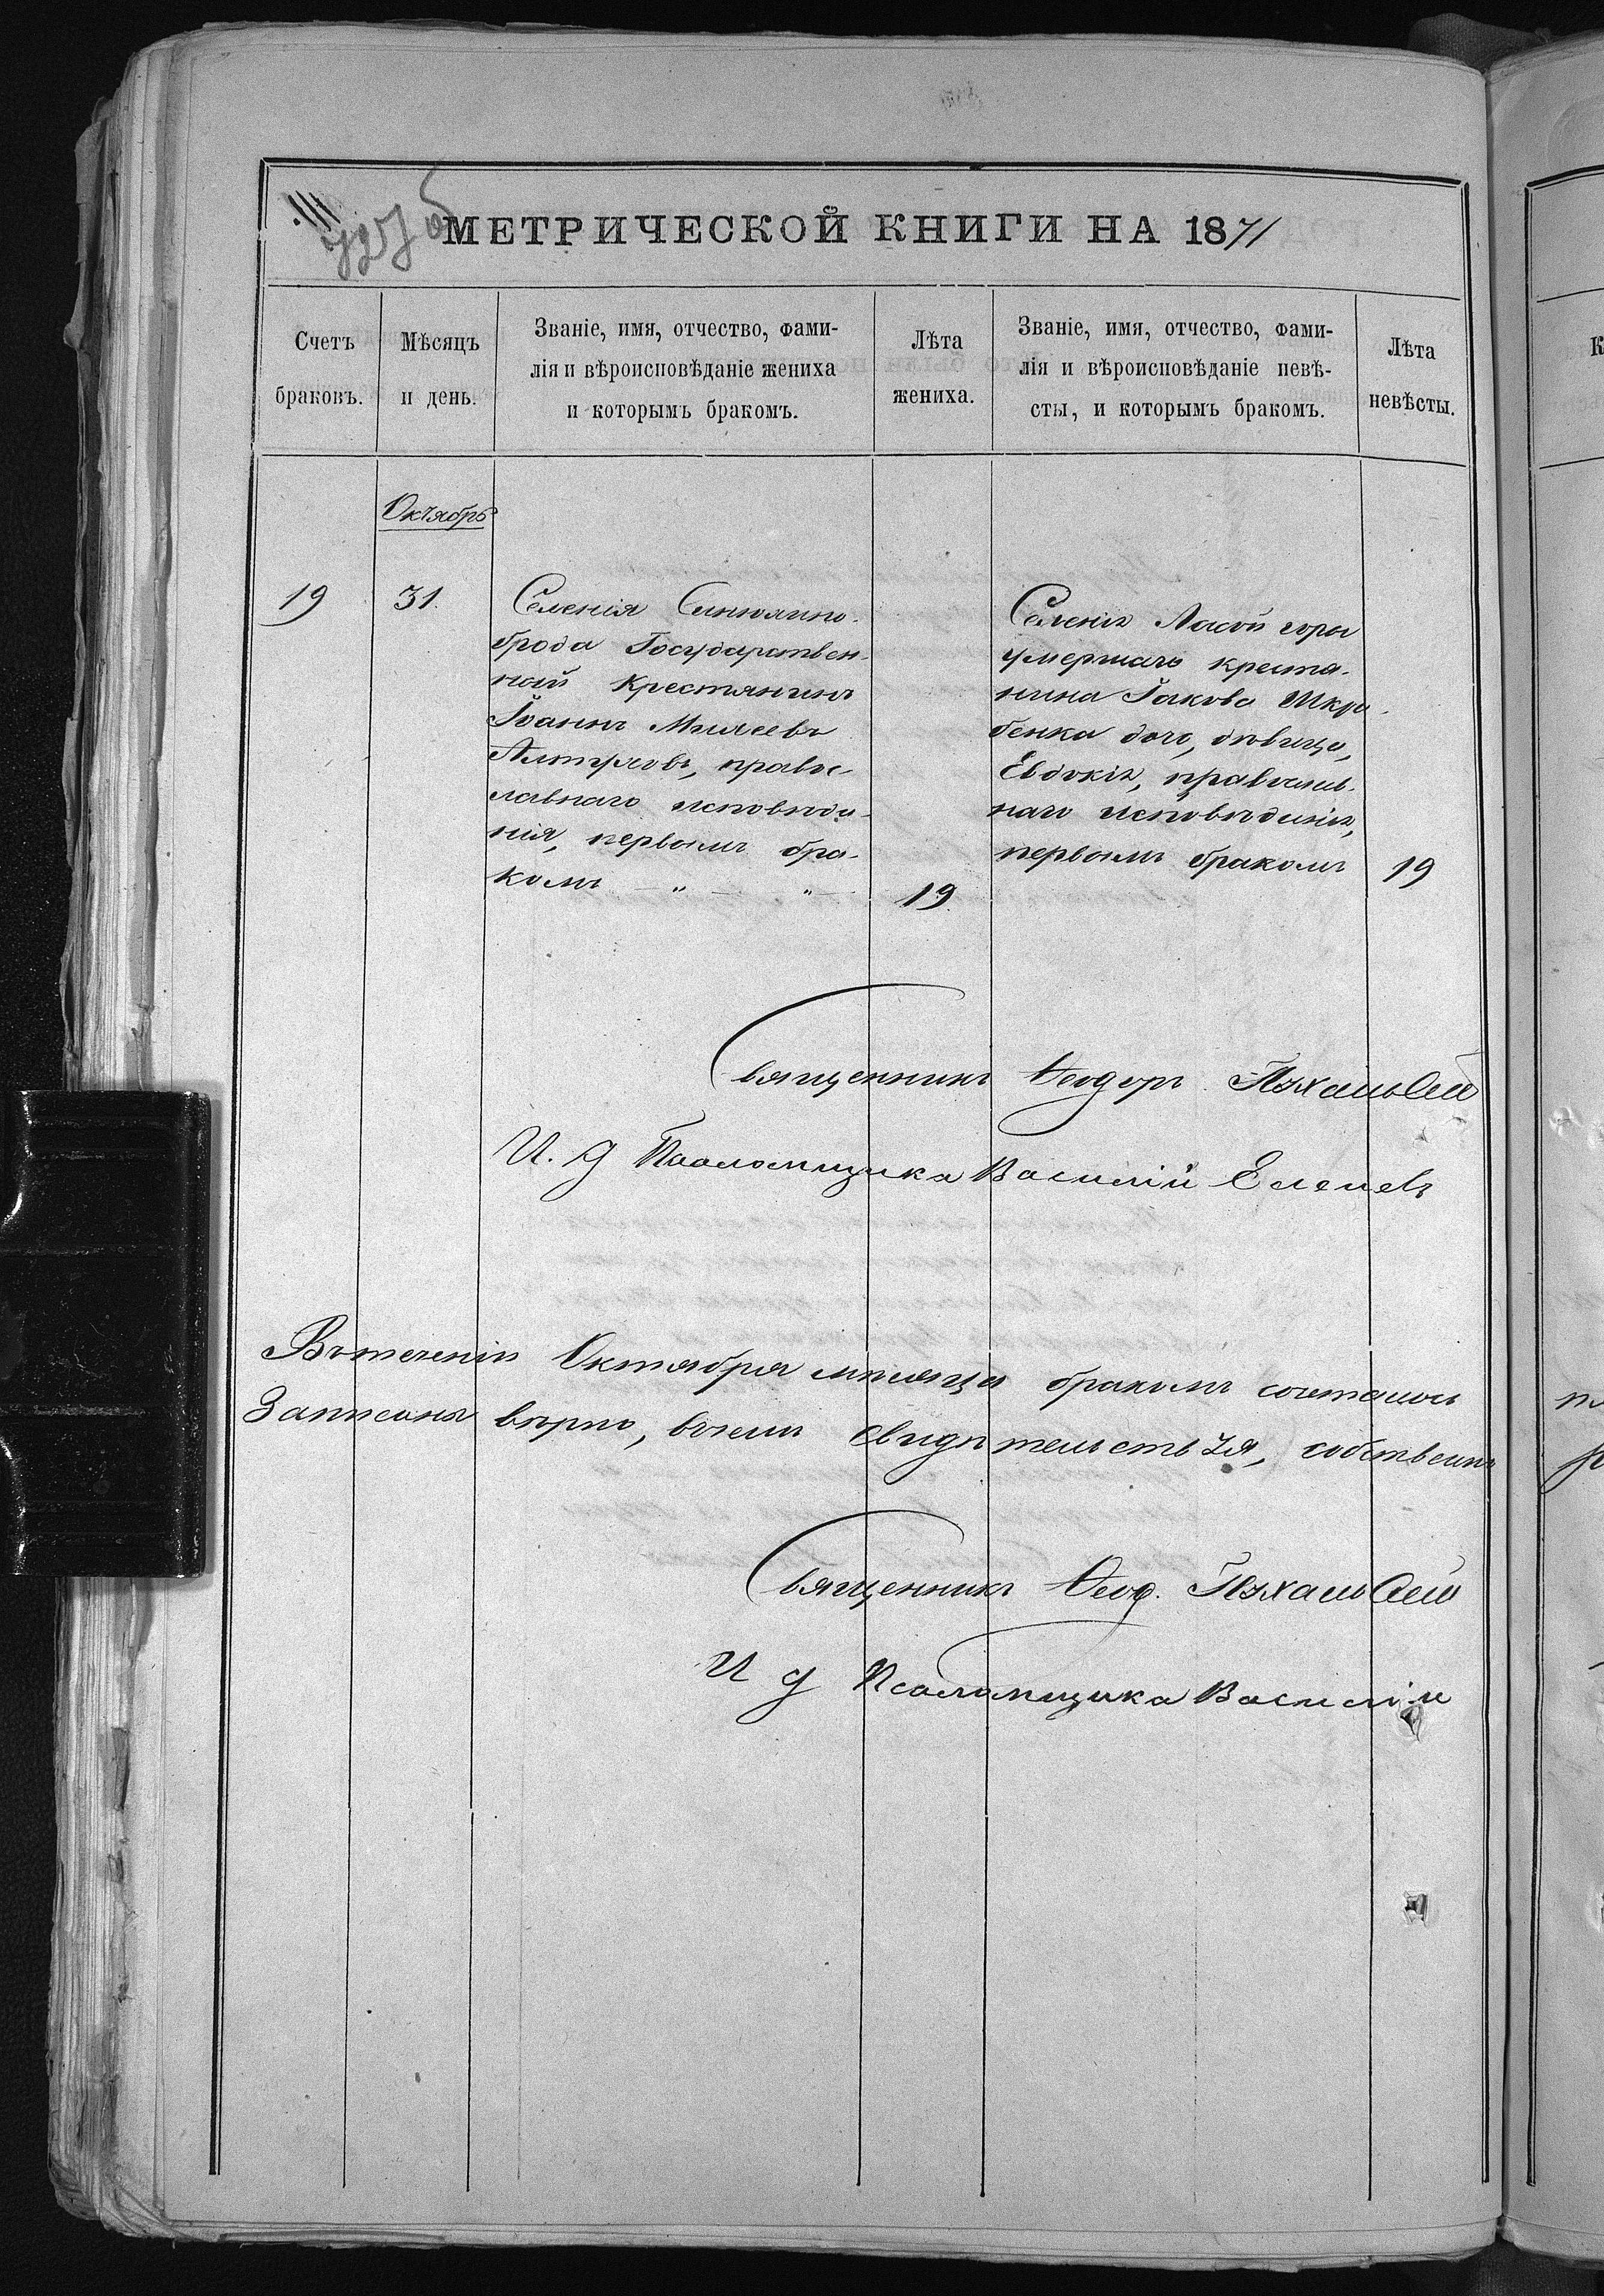 МЕТРИЧЕСКОЙ КНИГИ НА 1871
Счетъ браковъ.
Мѣсяцъ и день.
Званіе, имя, отчество, фами-
лія и вѣроисповѣданіе жениха
и которымъ бракомъ.
Лѣта жениха.
Званіе, имя, отчество, фами-
лія и вѣроисповѣданіе невѣ-
сты, и которымъ бракомъ.
Лѣта невѣсты.
Октябрь
19
31.
Селенія Синюхино-
брода Государствен-
ный крестьянинъ
Іоаннъ
правос-
лавнаго исповѣда-
нія, первымъ бра-
комъ — „ — „ —
19.
Селенія Лысой горы
умершаго крестья-
нина Іакова Шкра-
бенка дочь, дѣвица,
Евдокія, православ-
наго исповѣданія,
первымъ бракомъ
19
Священникъ Ѳеодоръ
И. д Псаломщика Василій
Въ теченіи Октября мѣсяца бракомъ сочеталось
Записаны вѣрно, въ чемъ свидѣтельствуя,
Священникъ Ѳеод.
И д Псаломщика Василій